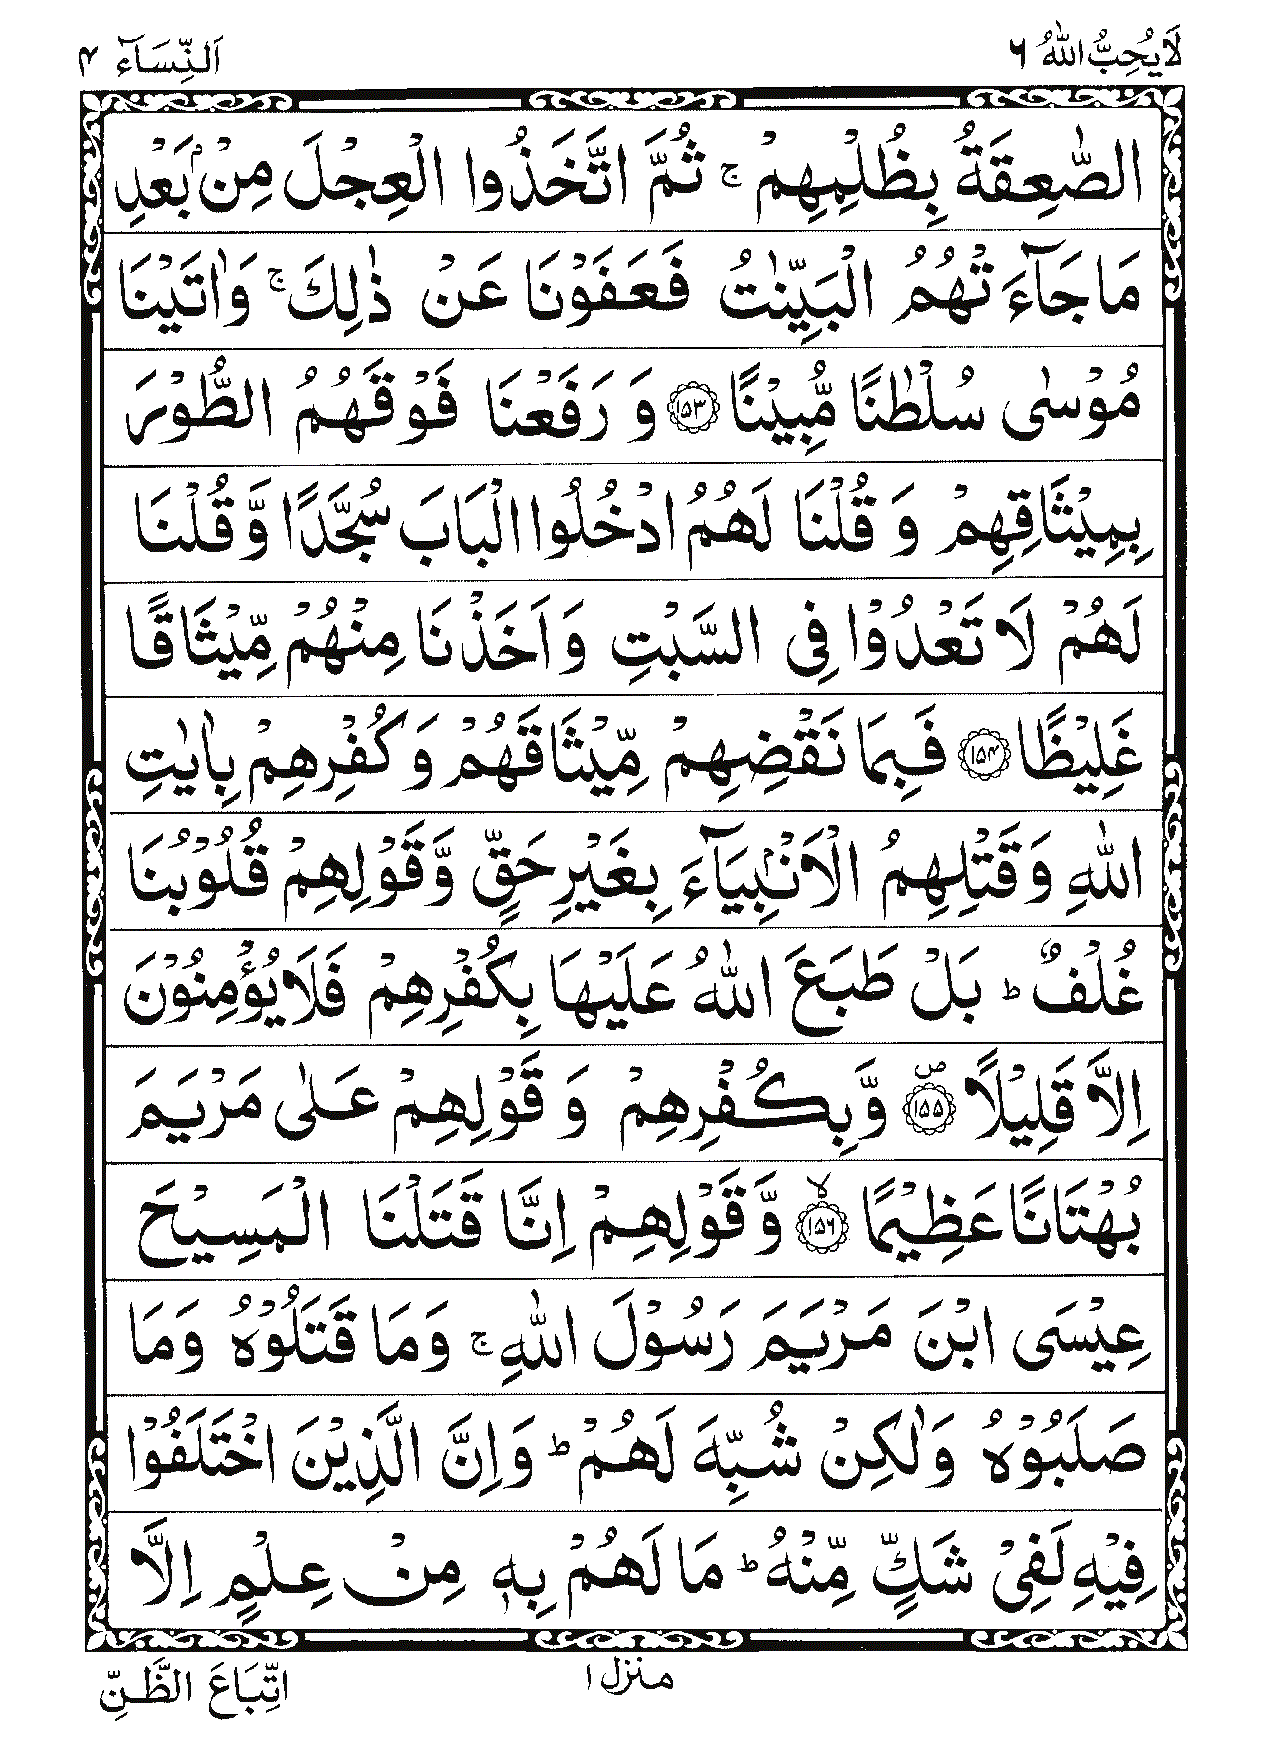 لَا یُحِبُّ اللّٰهُ ۶
اَلنِّسَآء ۴
الصّٰعِقَةُ بِظُلْمِهِمْ ۚ ثُمَّ اتَّخَذُوا الْعِجْلَ مِنْۢ بَعْدِ
مَا جَآءَتْهُمُ الْبَیِّنٰتُ فَعَفَوْنَا عَنْ ذٰلِكَ ۚ وَاٰتَیْنَا
مُوْسٰی سُلْطٰنًا مُّبِیْنًا ﴿۱۵۳﴾ وَ رَفَعْنَا فَوْقَهُمُ الطُّوْرَ
بِمِیْثَاقِهِمْ وَ قُلْنَا لَهُمُ ادْخُلُوا الْبَابَ سُجَّدًا وَّ قُلْنَا
لَهُمْ لَا تَعْدُوْا فِی السَّبْتِ وَ اَخَذْنَا مِنْهُمْ مِّیْثَاقًا
غَلِیْظًا ﴿۱۵۴﴾ فَبِمَا نَقْضِهِمْ مِّیْثَاقَهُمْ وَ كُفْرِهِمْ بِاٰیٰتِ
اللّٰهِ وَ قَتْلِهِمُ الْاَنْۢبِیَآءَ بِغَیْرِ حَقٍّ وَّ قَوْلِهِمْ قُلُوْبُنَا
غُلْفٌ ؕ بَلْ طَبَعَ اللّٰهُ عَلَیْهَا بِكُفْرِهِمْ فَلَا یُؤْمِنُوْنَ
اِلَّا قَلِیْلًا ﴿۱۵۵﴾ۖ وَّ بِكُفْرِهِمْ وَ قَوْلِهِمْ عَلٰی مَرْیَمَ
بُهْتَانًا عَظِیْمًا ﴿۱۵۶﴾ۙ وَّ قَوْلِهِمْ اِنَّا قَتَلْنَا الْمَسِیْحَ
عِیْسَی ابْنَ مَرْیَمَ رَسُوْلَ اللّٰهِ ۚ وَمَا قَتَلُوْهُ وَمَا
صَلَبُوْهُ وَلٰكِنْ شُبِّهَ لَهُمْ ؕ وَاِنَّ الَّذِیْنَ اخْتَلَفُوْا
فِیْهِ لَفِیْ شَكٍّ مِّنْهُ ؕ مَا لَهُمْ بِهٖ مِنْ عِلْمٍ اِلَّا
منزل ۱
اتِّبَاعَ الظَّنِّ